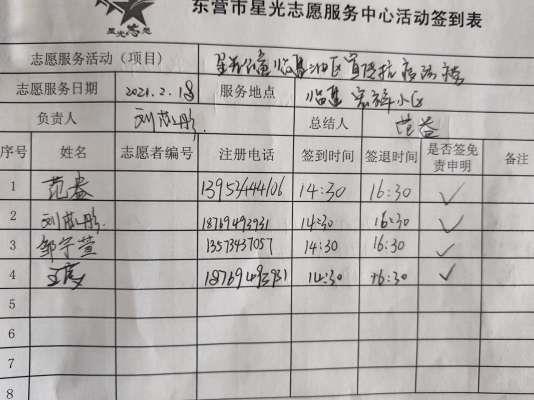 东营市星光志愿服务中心活动签到表
星光志愿
志愿服务活动（项目）
志愿服务日期 2021.2.18 服务地点 临基 小区
负责人 刘 彤 总结人 范益
序号 姓名 志愿者编号 注册电话 签到时间 签退时间 是否签免责申明 备注
1 范益 13953444106 14:30 16:30 ✓
2 刘 彤 18769493931 14:30 16:30 ✓
3 邹宇萱 13573437057 14:30 16:30 ✓
4 18769493931 14:30 16:30 ✓
5
6
7
8